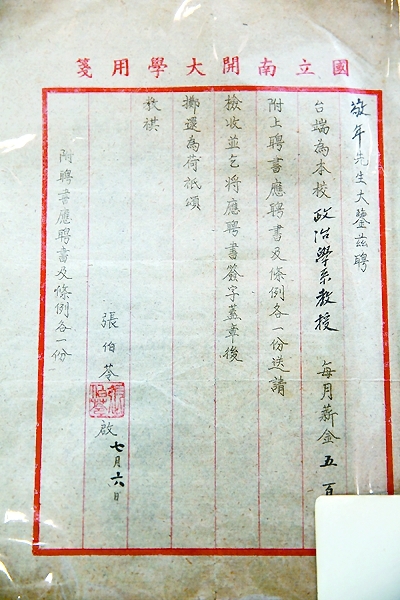 國立南開大學用箋
年先生大鑒茲聘
台端為本校政治學系教授 每月薪金五百
附上聘書應聘書及條例各一份送請
檢收並乞將應聘書簽字蓋章後
擲還為荷祇頌
教祺
張伯苓 啟 七月六日
附聘書應聘書及條例各一份